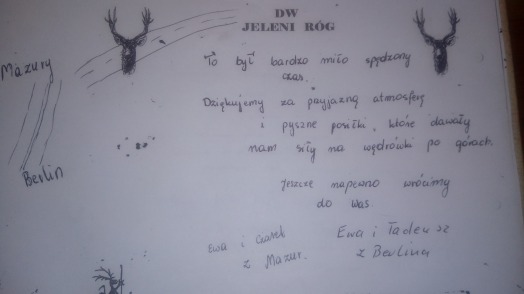 DW
JELENI RÓG
Mazury
To był bardzo miło spędzony
czas.
Dziękujemy za przyjazną atmosferę
i pyszne posiłki, które dawały
nam siły na wędrówki po górach.
Berlin
Jeszcze napewno wrócimy
do was.
Ewa i Czarek
z Mazur.
Ewa i Tadeusz
z Berlina